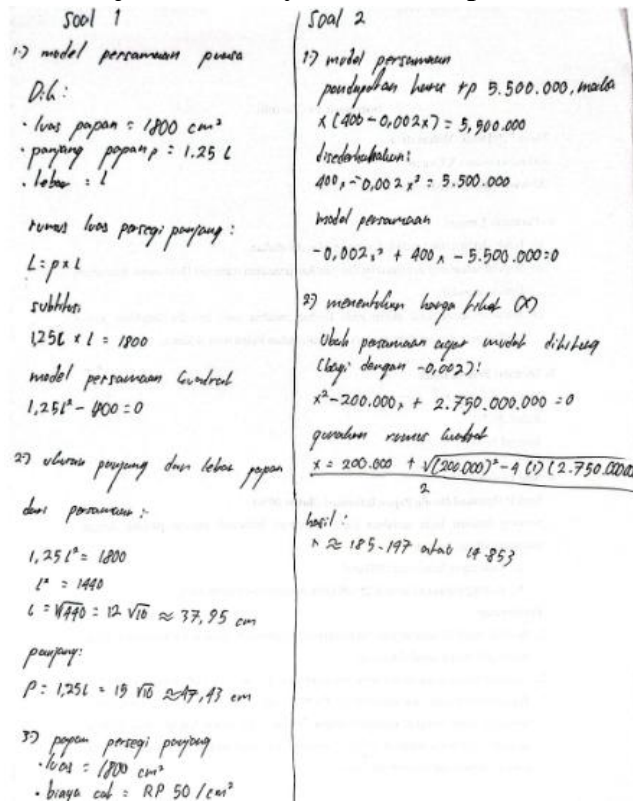 Soal 1
1.) model persamaan
Dik:
• luas papan = 1800 cm²
• panjang papan p = 1.25 l
• lebar = l
rumus luas persegi panjang :
L = p x L
subtitusi
1,25l x l = 1800
model persamaan kuadrat
1,25l² - 800 = 0
2.) ukuran panjang dan lebar papan
dari persamaan :
1,25 l² = 1800
l² = 1440
l = √1440 = 12 √10 ≈ 37,95 cm
panjang:
P = 1,25l = 15 √10 ≈ 47,43 cm
3.) papan persegi panjang
• luas = 1800 cm²
• biaya cat = RP 50 / cm²
Soal 2
1.) model persamaan
pendapatan harus Rp 5.500.000, maka
x (400 - 0,002x) = 5,500.000
disederhanakan:
400x - 0,002 x² = 5.500.000
model persamaan
-0,002x² + 400x - 5.500.000 = 0
2.) menentukan harga tiket (x)
Ubah persamaan agar mudah dihitung
(bagi dengan -0,002):
x² - 200.000x + 2.750.000.000 = 0
gunakan rumus kuadrat
x = 200.000 + √(200.000)² - 4 (1) (2.750.000.000
2
hasil :
x ≈ 185.147 atau 14.853